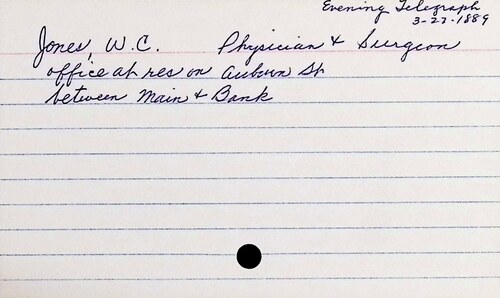 Evening Telegraph
3-27-1889
Jones, W.C. Physician & Surgeon
office at res on Auburn St
between Main & Bank